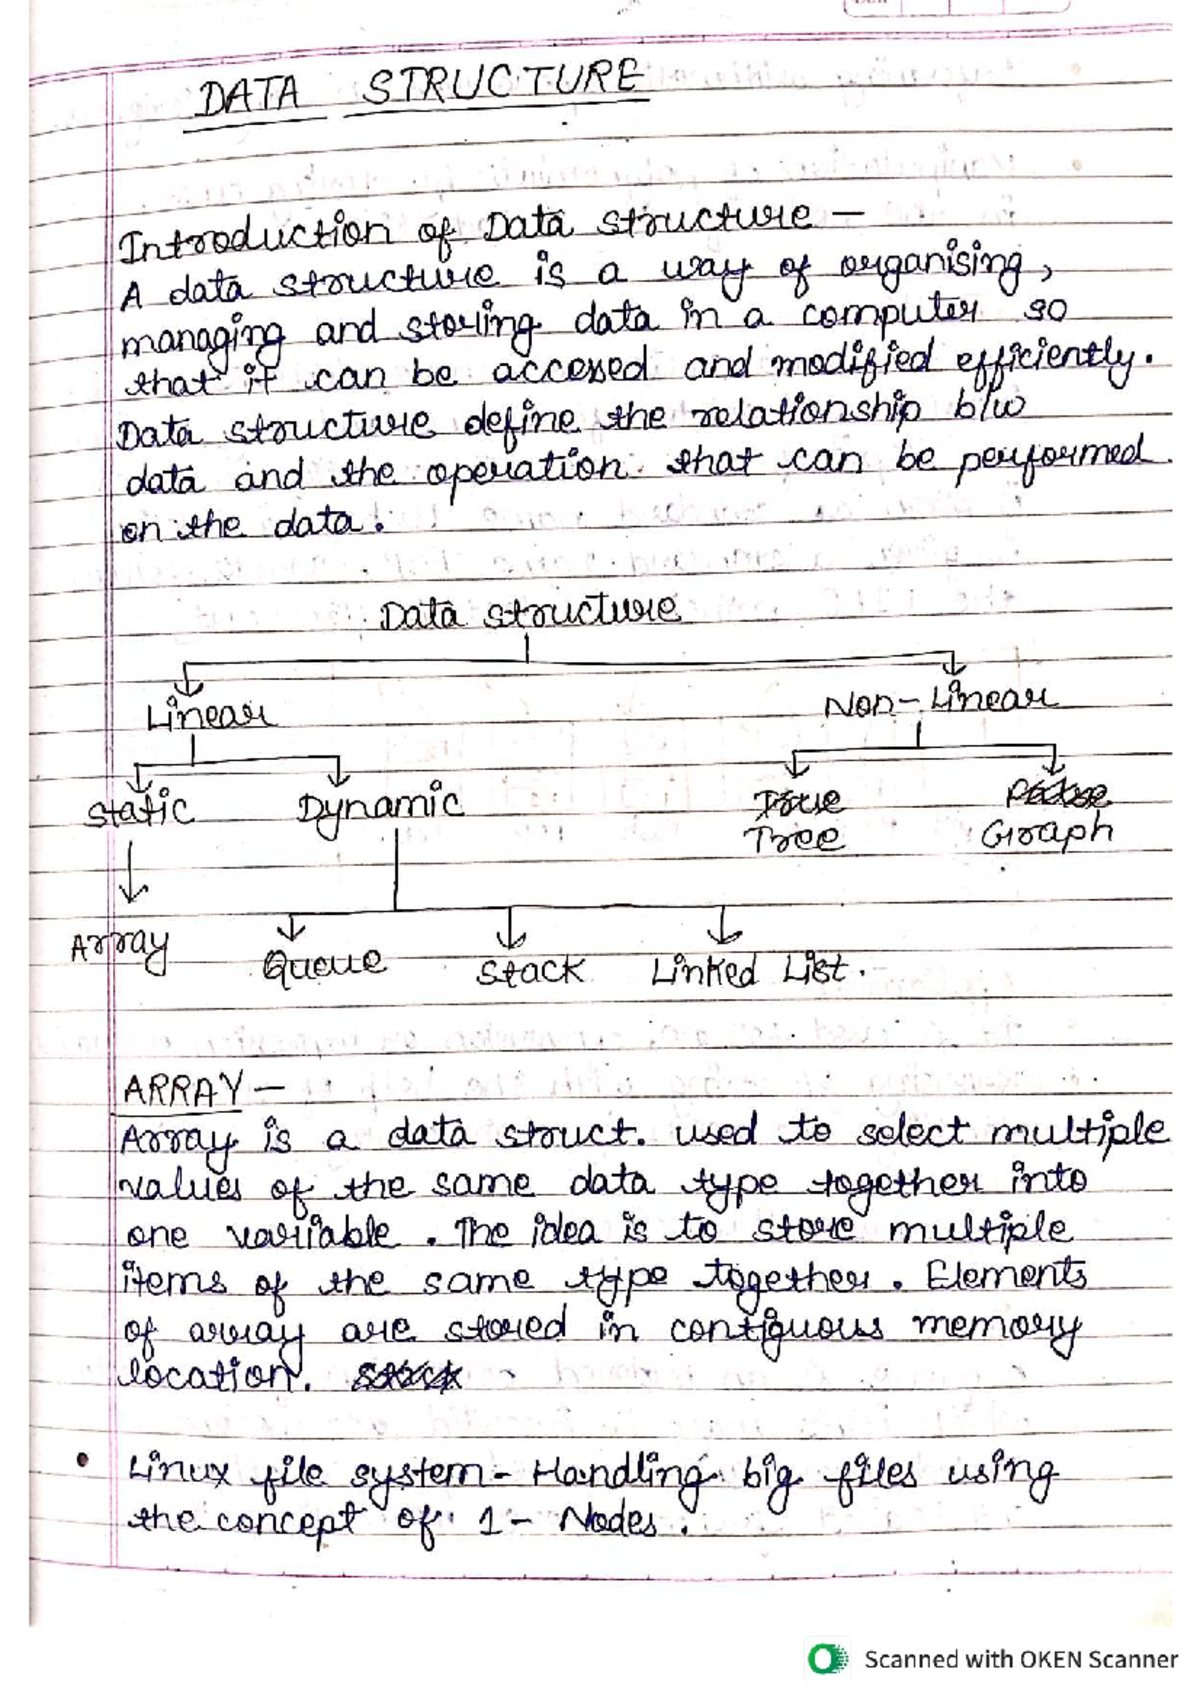 DATA STRUCTURE
Introduction of Data Structure -
A data structure is a way of organising,
managing and storing data in a computer so
that it can be accessed and modified efficiently.
Data structure define the relationship b/w
data and the operation that can be performed
on the data.
Data structure
Linear Non-Linear
Static Dynamic
Tree Graph
Array Queue Stack Linked List.
ARRAY -
Array is a data struct. used to select multiple
values of the same data type together into
one variable. The idea is to store multiple
items of the same type together. Elements
of array are stored in contiguous memory
location.
• Linux file system - Handling big files using
the concept of 1 - Nodes.
Scanned with OKEN Scanner